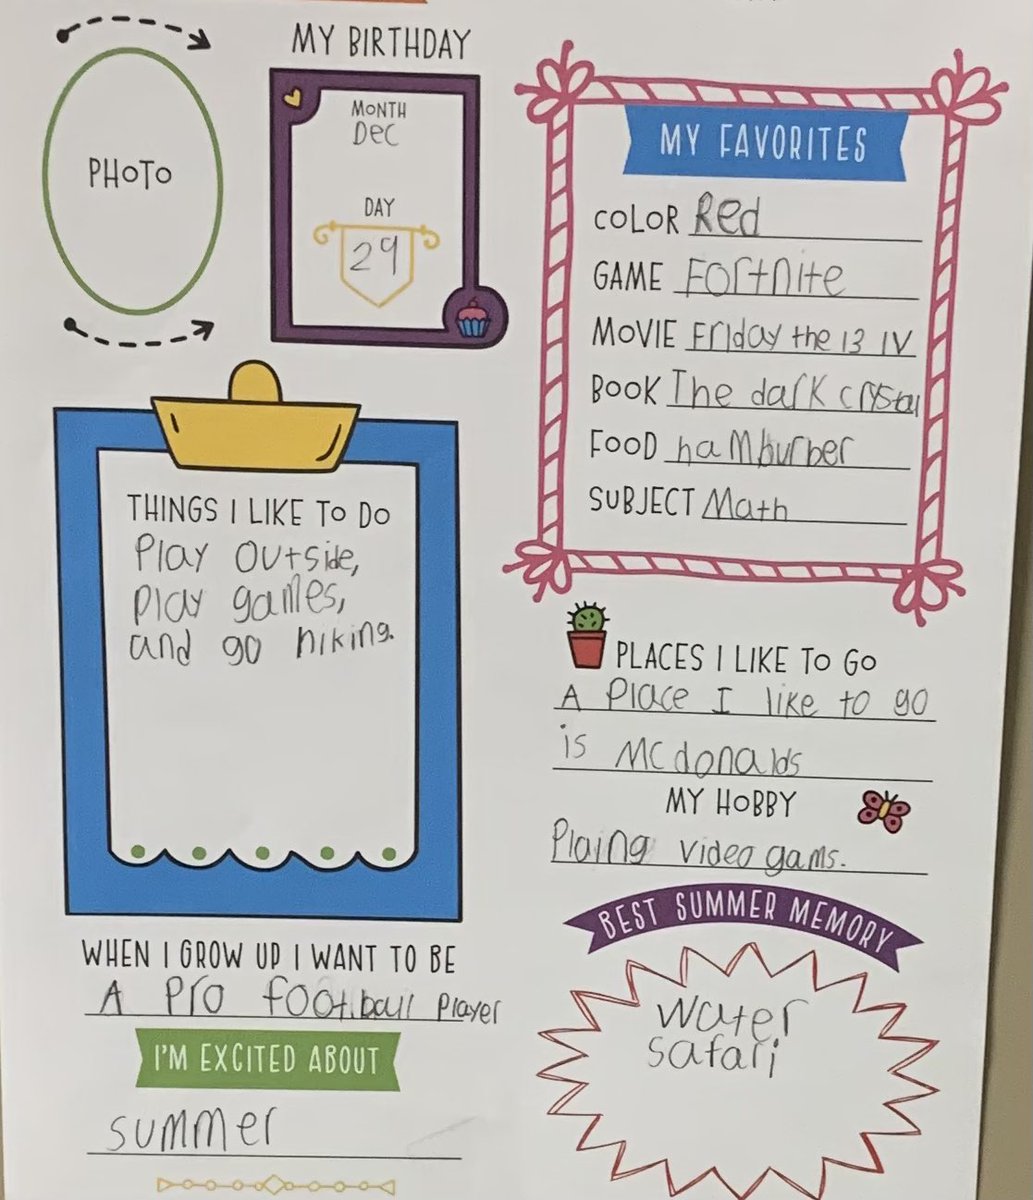 PHOTO
MY BIRTHDAY
MONTH
Dec
DAY
29
MY FAVORITES
COLOR Red
GAME Fortnite
MOVIE Friday the 13 IV
BOOK The dark crystal
FOOD hamburber
SUBJECT Math
THINGS I LIKE TO DO
Play outside,
play games,
and go hiking.
PLACES I LIKE TO GO
A Place I like to go
is Mcdonalds
MY HOBBY
Plaing video gams.
WHEN I GROW UP I WANT TO BE
A Pro football Player
I'M EXCITED ABOUT
summer
BEST SUMMER MEMORY
water
safari